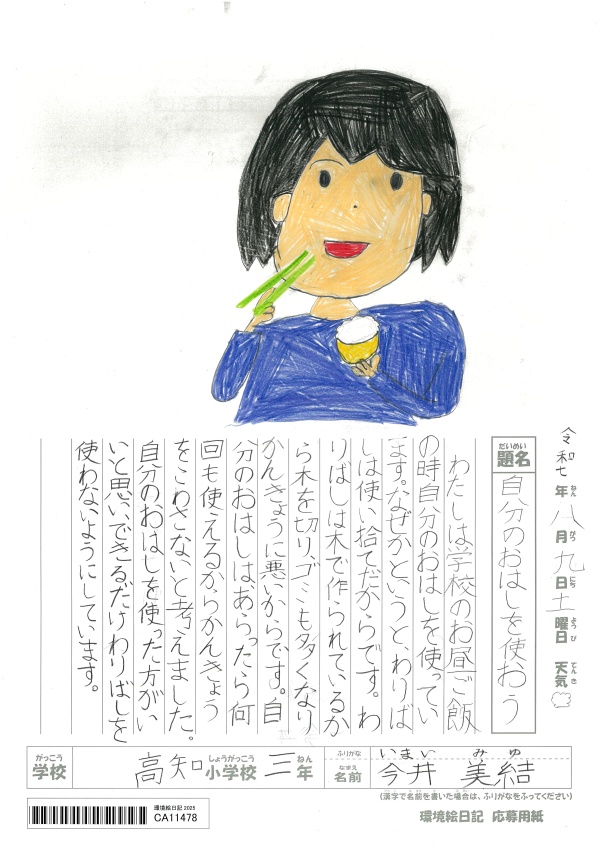 令和七年八月九日土曜日 天気
だいめい
題名 自分のおはしを使おう
わたしは学校のお昼ご飯
の時自分のおはしを使ってい
ます。なぜかというと、わりば
しは使い捨てだからです。わ
りばしは木で作られているか
ら木を切り、ゴミも多くなり
かんきょうに悪いからです。自
分のおはしはあらったら何
回も使えるからかんきょう
をこわさないと考えました。
自分のおはしを使った方がい
いと思い、できるだけわりばしを
使わないようにしています。
がっこう しょうがっこう ねん
学校 高知小学校 三年
ふりがな いまい みゆ
なまえ
名前 今井 美結
(漢字で名前を書いた場合は、ふりがなをふってください)
環境絵日記 2025
CA11478
環境絵日記 応募用紙